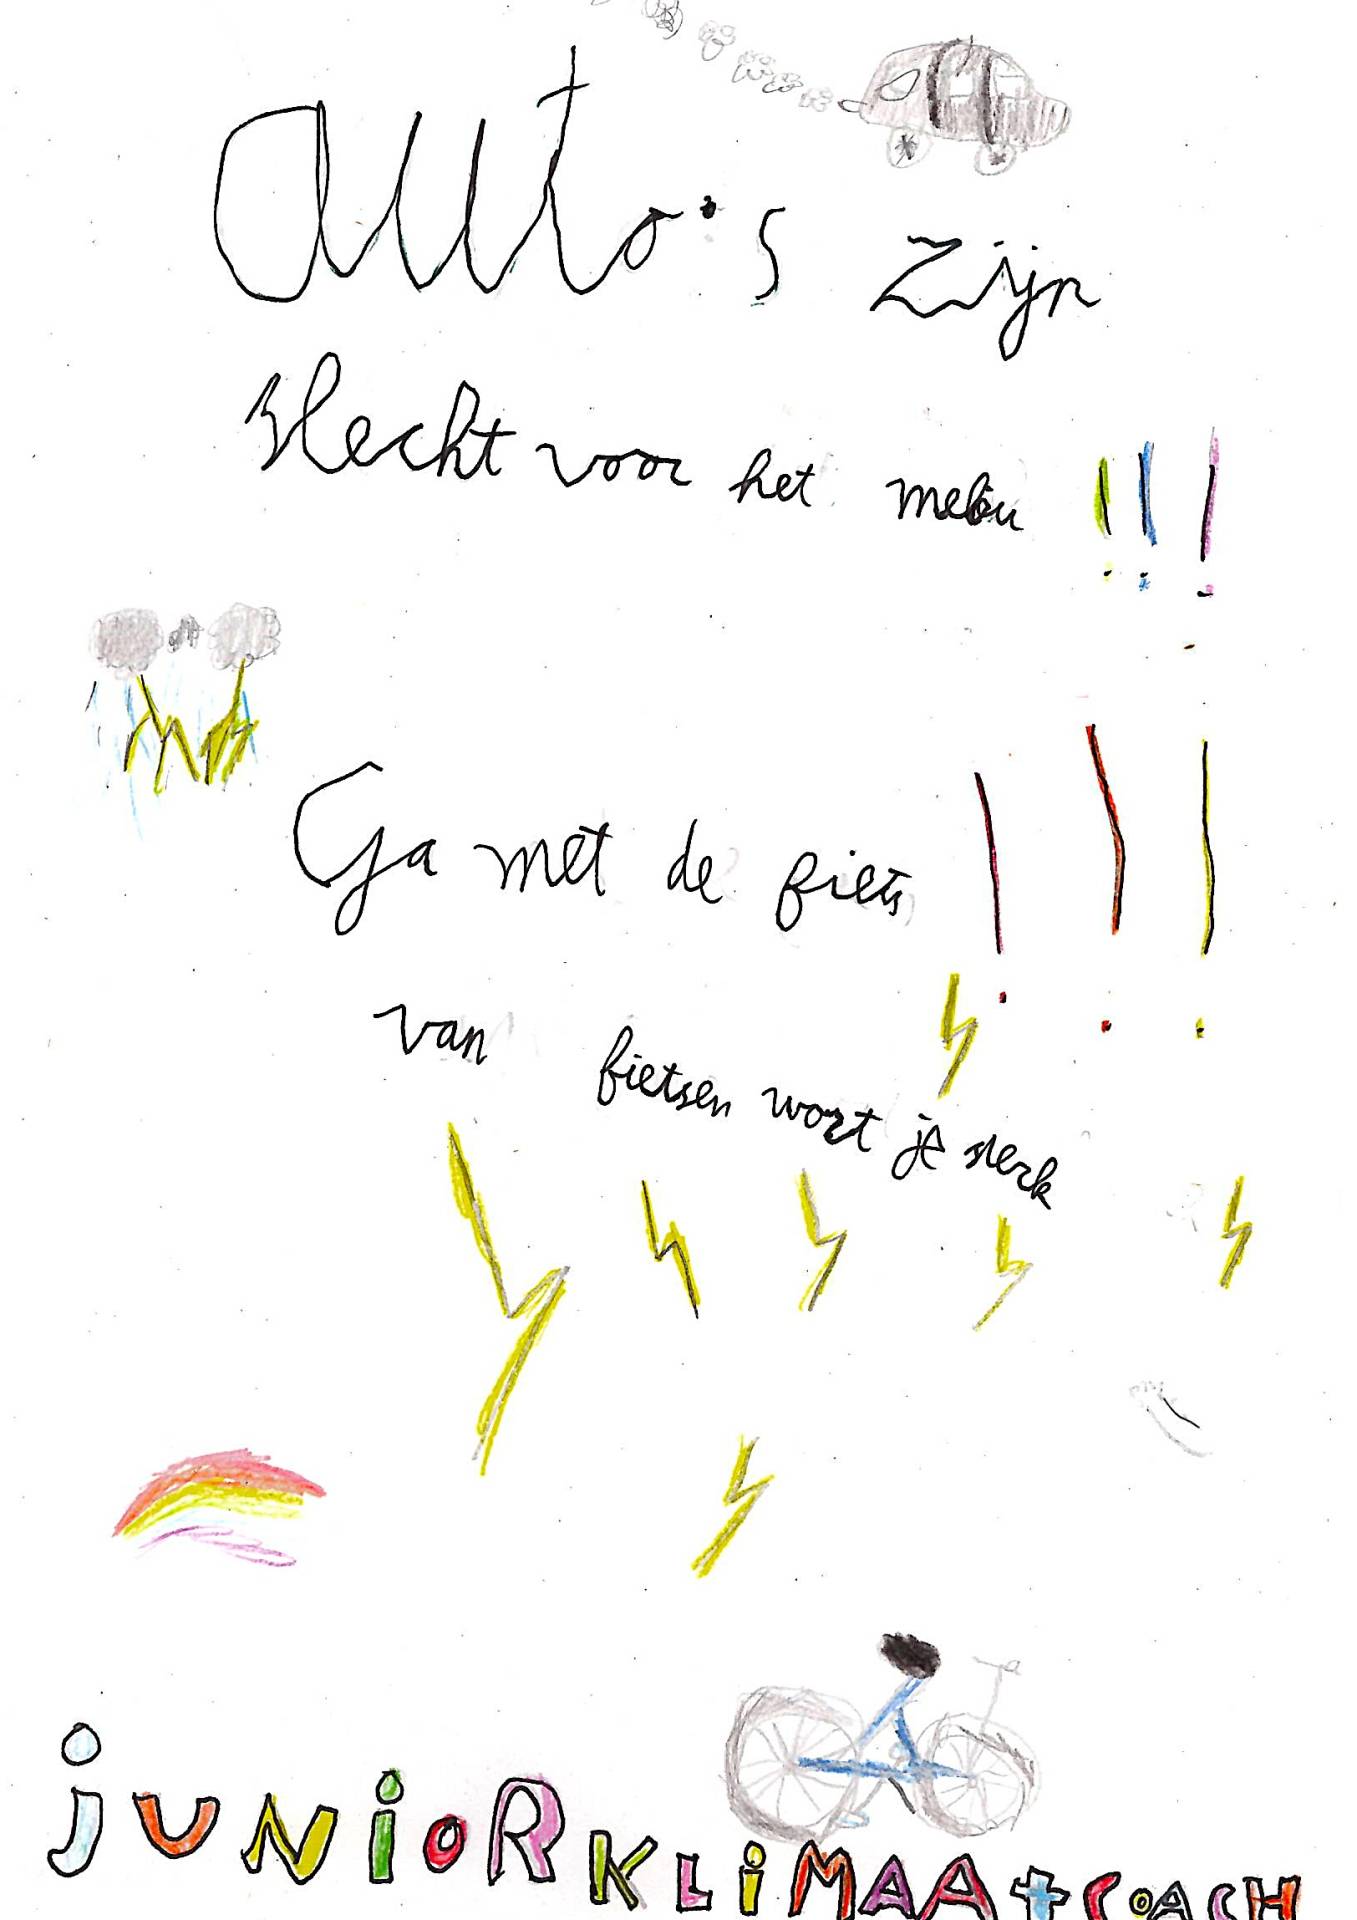 auto's zijn
slecht voor het meliu !!!
Ga met de fiets !!!
van fietsen wort je sterk
jUNiOR KLiMAAtCOACH